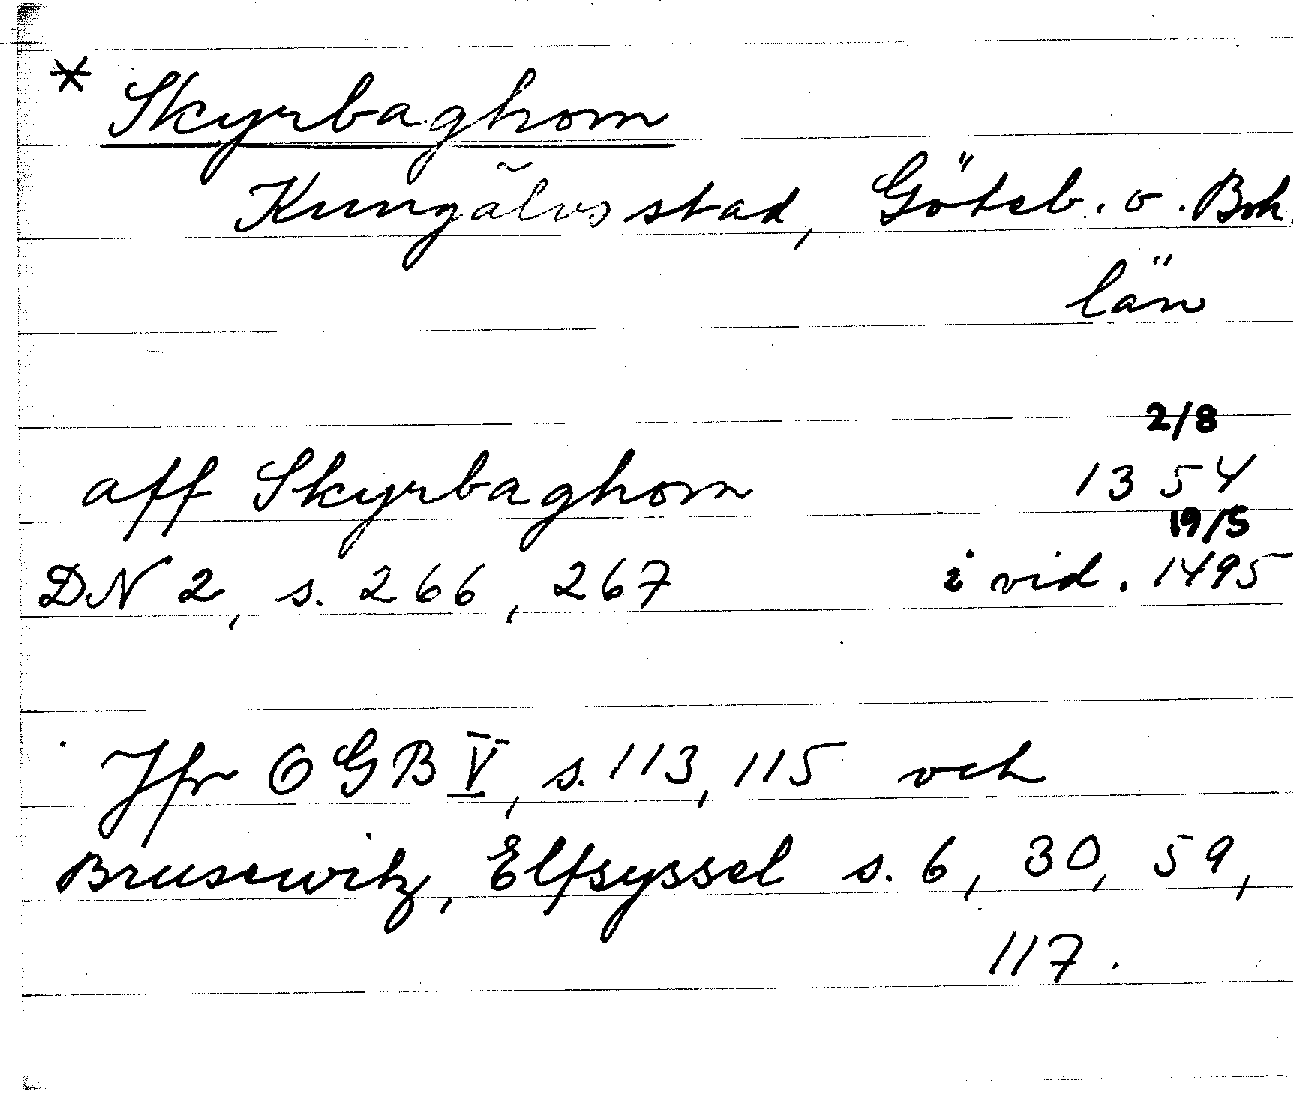 * Skyrbaghom
Kungälvs stad, Göteb. o. Boh.
län
2/8
aff Skyrbaghom 1354
19/5
DN 2, s. 266, 267 i vid. 1495
Jfr OGB V, s. 113, 115 och
Brusewitz, Elfsyssel s. 6, 30, 59,
117.